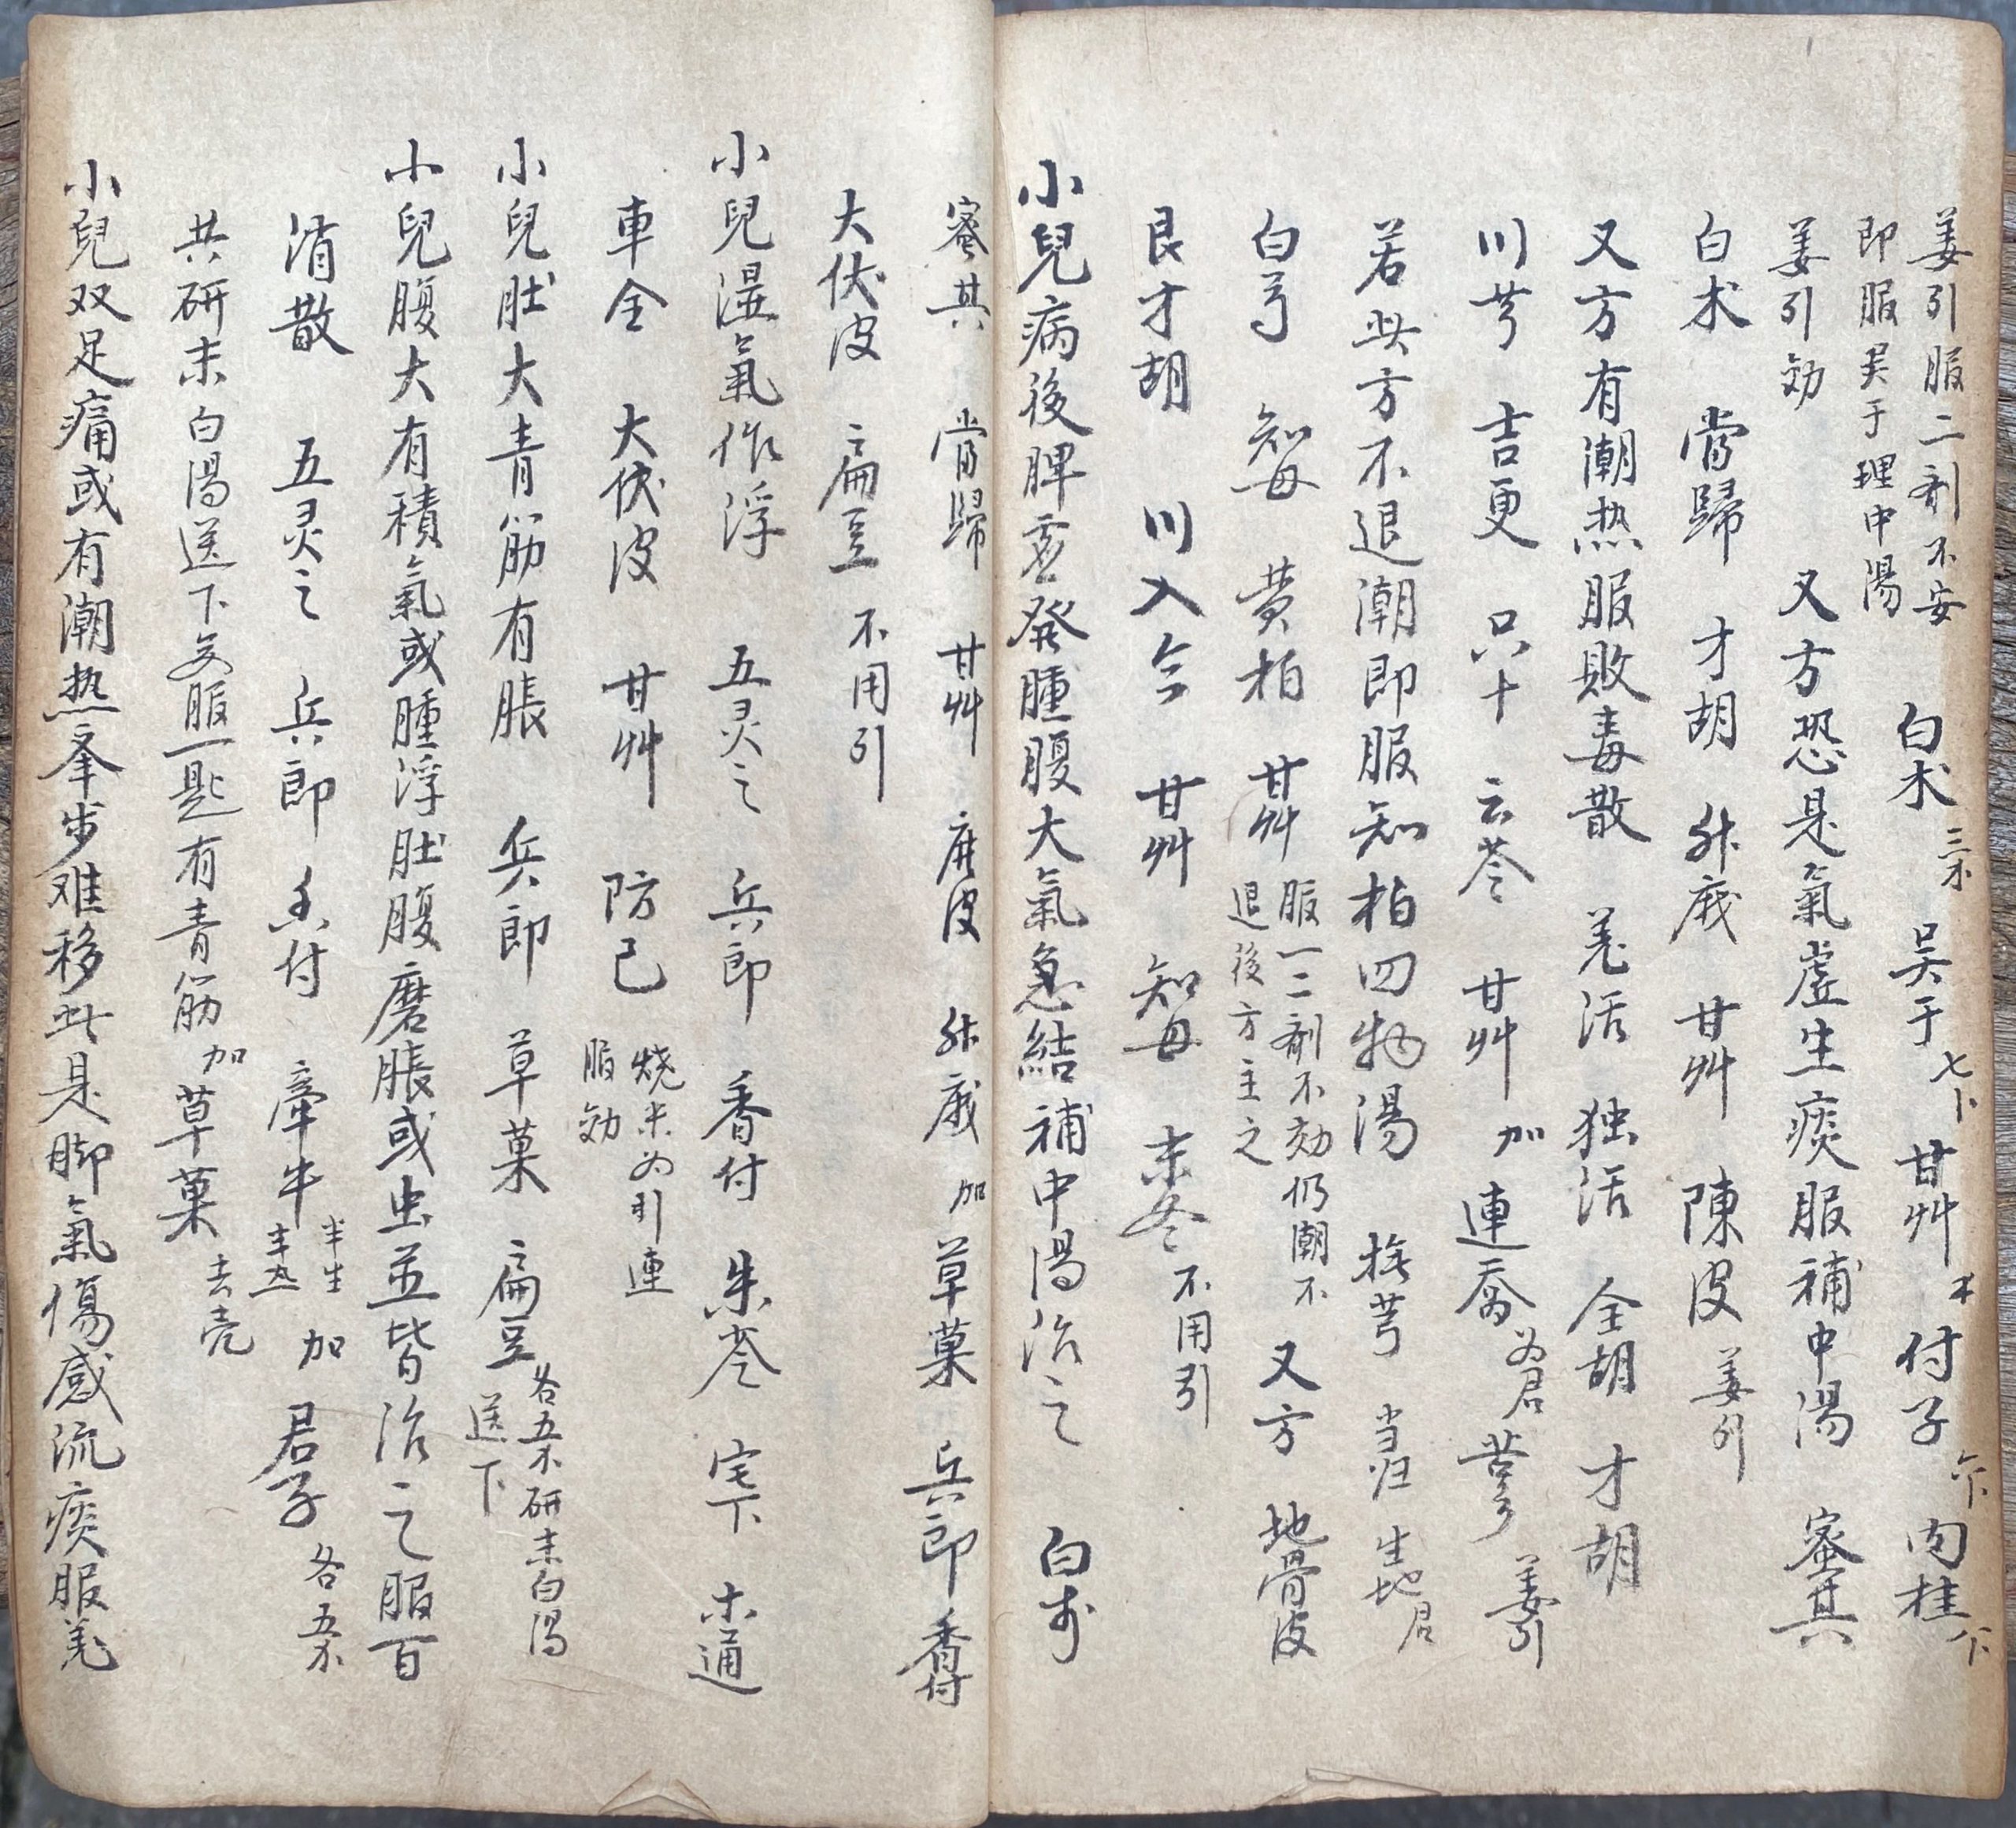 姜引服二剂不安 白术 三 吴于 七卜 甘艸 付子 肉桂
即服吴于理中湯
姜引効 又方恐是氣虚生痰服補中湯 蜜其
白术 當歸 才胡 升麻 甘艸 陳皮 姜引
又方有潮热服敗毒散 羌活 独活 全胡 才胡
川芎 吉更 只十 云苓 甘艸 加連喬 为君 姜引
若此方不退潮即服知柏四物湯 撫芎 当归 生地 君
白芍 知母 黄柏 甘艸 服一二剂不効仍潮不
退後方主之 又方 地骨皮
艮才胡 川入 甘艸 知母 末冬 不用引
小兒病後脾虚發腫腹大氣急結補中湯治之 白术
蜜其 當歸 甘艸 陳皮 升麻 加草菓 兵郎 香付
大伏皮 扁豆 不用引
小兒湿氣作浮 五灵之 兵郎 香付 朱苓 宅下 木通
車全 大伏皮 甘艸 防已 烧米为引連
服効
小兒肚大青筋有脹 兵郎 草菓 扁豆 各五 研末白湯
送下
小兒腹大有積氣或腫浮肚腹磨脹或虫並皆治之服百
消散 五灵之 兵郎 香付 牽牛 半生半热 加君子 各五
共研末白湯送下 服一匙有青筋加草菓 去壳
小兒双足痛或有潮热举步难移此是脚氣傷感流痰服羌